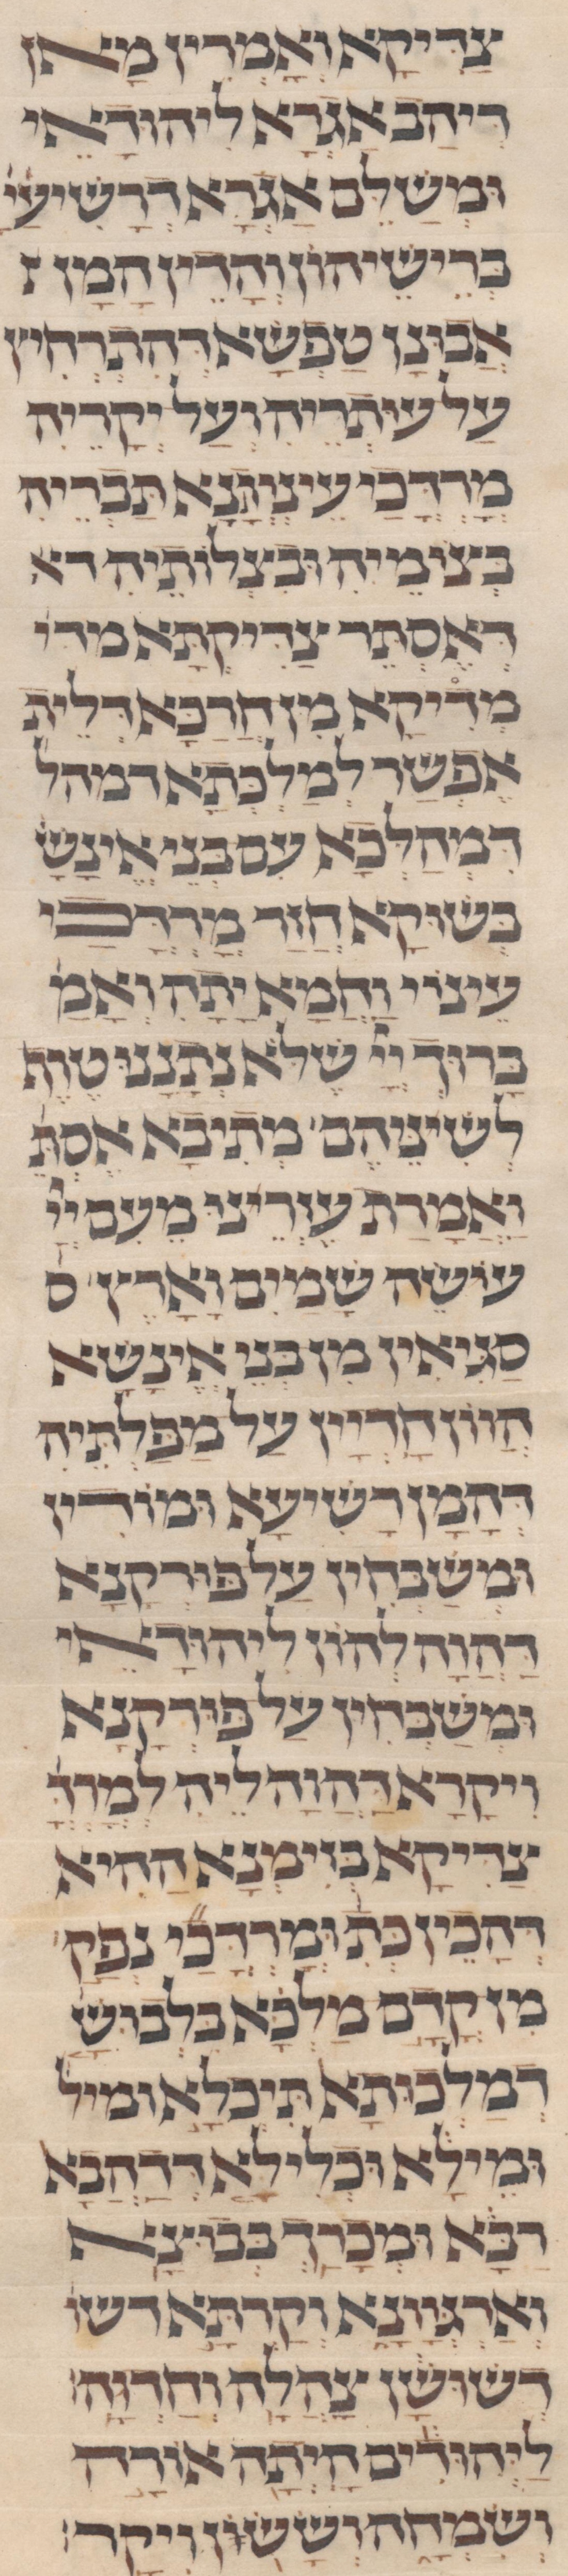 צַדִיקָא וְאָמְרִין מָאן
דִיהַב אַגְרָא לִיהוּדָאֵי
וּמְשַלֵם אַגְרָא דְרַשִיעַיָ
בְרֵישֵיהוֹן וְהָדֵין הָמָן ד
אֲבוּנַן טַפְשָא דְהִתְרְחִיץ
עַל עוּתְרֵיהּ וְעַל יְקָרֵיהּ
מָרְדְכַי עִינְוְתָנָא תַבְרֵיהּ
בְצוֹמֵיהּ וּבִצְלוֹתֵיהּ דא
דְאֶסְתֵר צַדִיקְתָא מדי
מַדִיקָא מִן חַרְבָא דְלֵית
אֶפְשַר לְמַלְכְתָא דמהל
דִמְהַלְכָא עִם בְנֵי אֱינָשָ
בְשוּקָא חֲזַר מָרְדְכַי
עֵינוֹי וַחֲמָא יָתָהּ וְאָמַ
בָרוּךְ יְיָ שֶלֹא נְתָנָנוּ טֶרֶף
לְשִינֵיהֶם מְתִיבָא אֶסְתֵ
וַאֲמָרַת עֶזְרֵינוּ מֵעִם יְיָ
עוֹשֵה שָמַיִם וָאָרֶץ ס
סַגִיאִין מִן בְנֵי אֱינָשָא
הֲווֹן חָדְיָין עַל מַפַלְתֵיהּ
דְהָמָן רַשִיעָא וּמוֹדִין
וּמְשַבְחִין עַל פוּרְקָנָא
דַהֲוָה לְהוֹן לִיהוּדָאֵי
וּמְשַבְחִין עַל פוּרְקָנָא
וִיקָרָא דַהֲוָה לֵיהּ לְמָרְדְ
צַדִיקָא בְזִימְנָא הַהִיא
דְהָכֵין כְתִ וּמָרְדְכַי נְפַק
מִן קֳדָם מַלְכָא בִלְבוּש
דְמַלְכוּתָא תִיכְלָא ומיל
וּמֵילָא וּכְלִילָא דְדַהֲבָא
רַבָא וּמְכָרַךְ בְבוּצָא
וְאַרְגְוָנָא וְקַרְתָא דשו
דְשוּשָן צָהֲלָה וְחַדְוָה
לַיְהוּדִים הָיְתָה אוֹרָה
וְשִמְחָה וְשָשוֹן וִיקָר׃